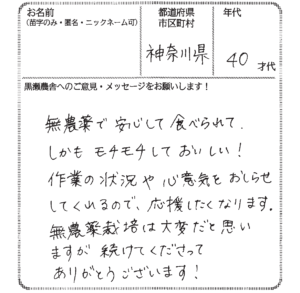 お名前
(苗字のみ・匿名・ニックネーム可)
都道府県
市区町村
年代
神奈川県
40 才代
黒瀬農舎へのご意見・メッセージをお願いします！
無農薬で安心して食べられて、
しかもモチモチしておいしい！
作業の状況や心意気をおしらせ
してくれるので、応援したくなります。
無農薬栽培は大変だと思い
ますが続けてくださって
ありがとうございます！